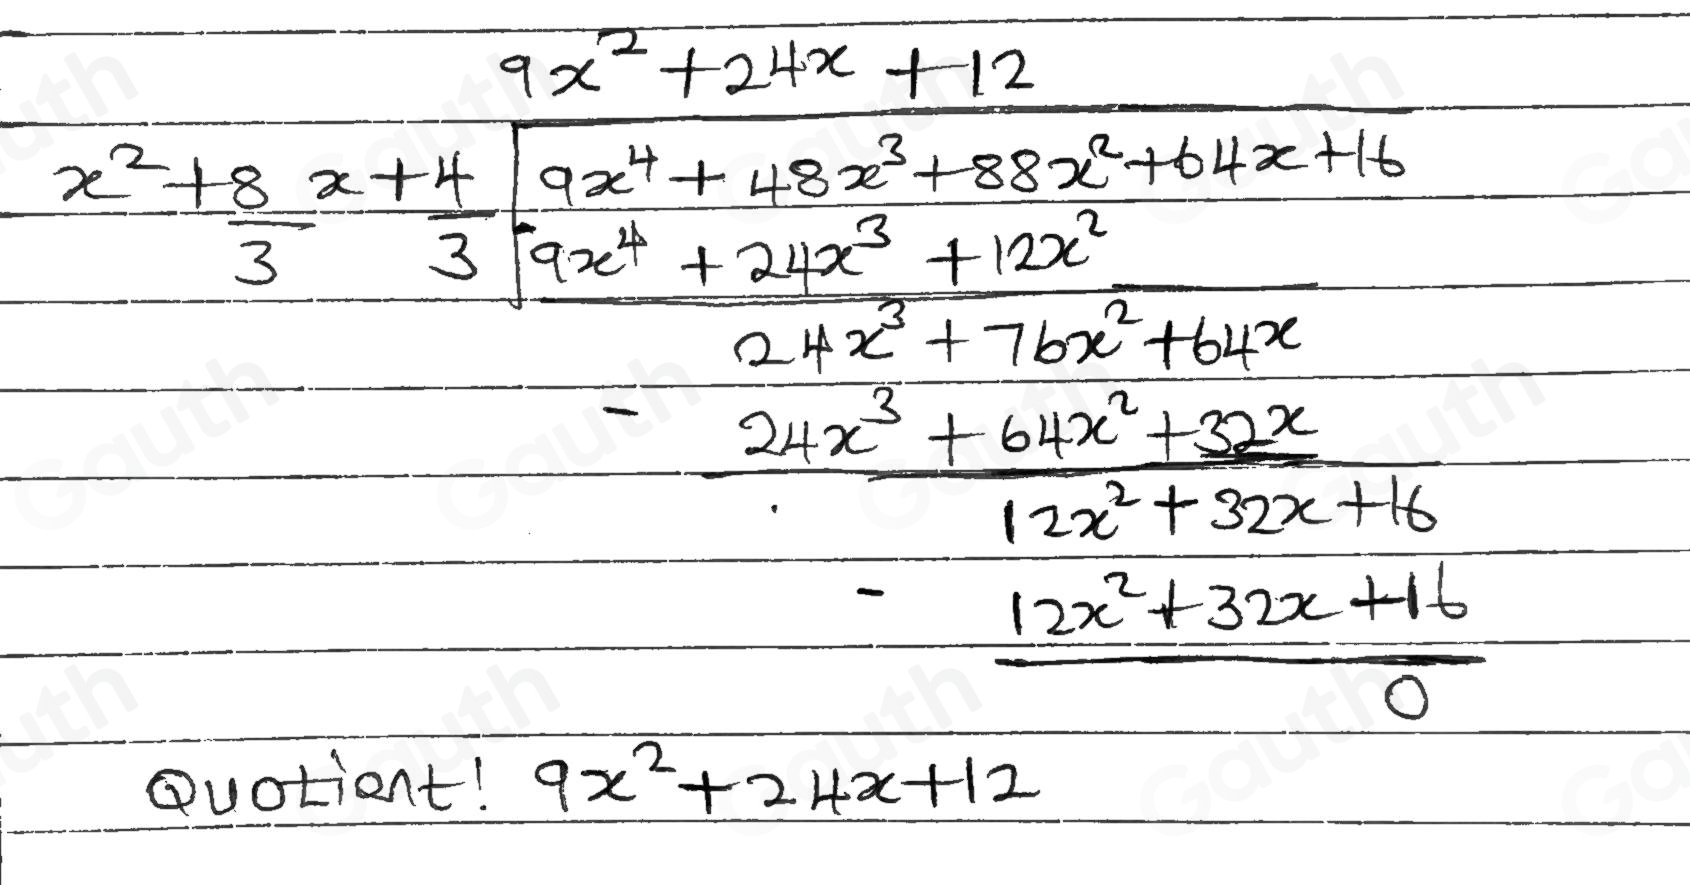 9x² + 24x + 12
x² + 8/3 x + 4/3 | 9x⁴ + 48x³ + 88x² + 64x + 16
- 9x⁴ + 24x³ + 12x²
24x³ + 76x² + 64x
- 24x³ + 64x² + 32x
12x² + 32x + 16
- 12x² + 32x + 16
0
Quotient! 9x² + 24x + 12
Gauth